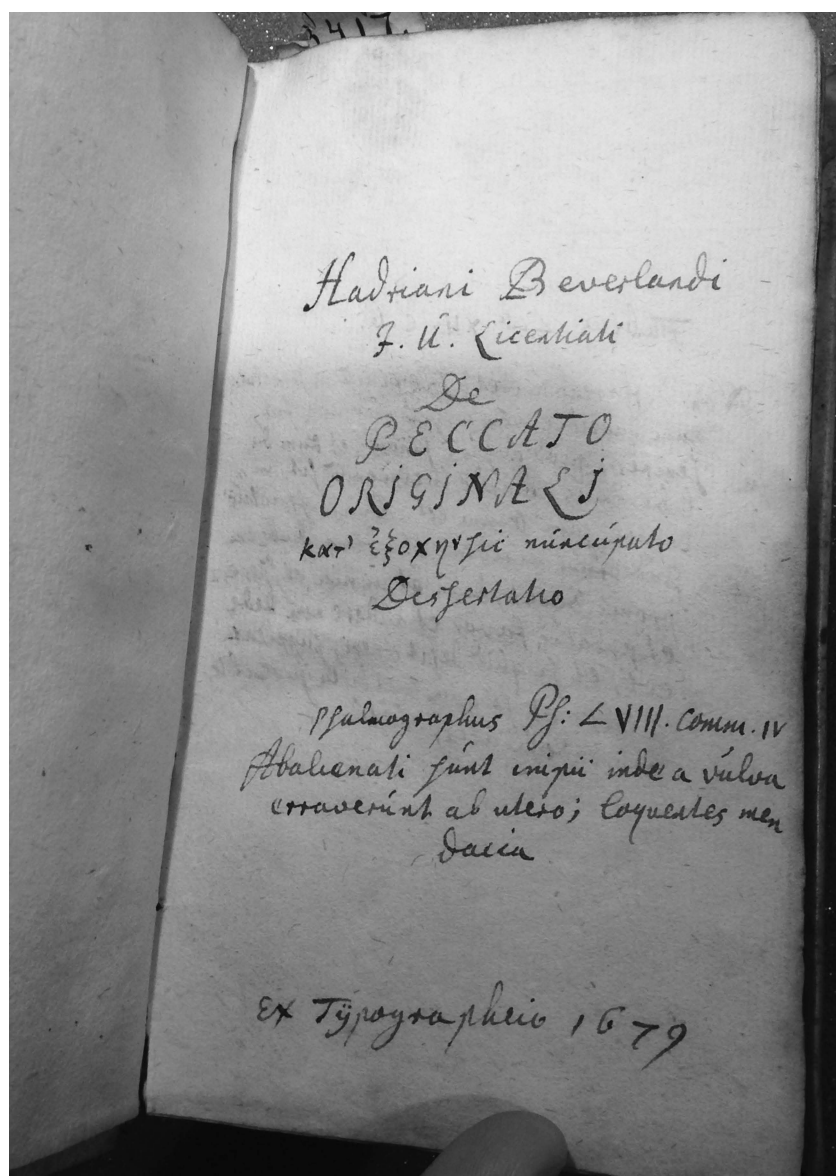 3417.
Hadriani Beverlandi
J. U. Licentiati
De
PECCATO
ORIGINALI
κατ' ἐξοχὴν sic nuncupato
Dessertatio
Psalmographus Ps: LVIII. Comm. IV
Abalienati sunt impii inde a vulva
erraverunt ab utero; loquentes men
dacia
Ex Typographeio 1679